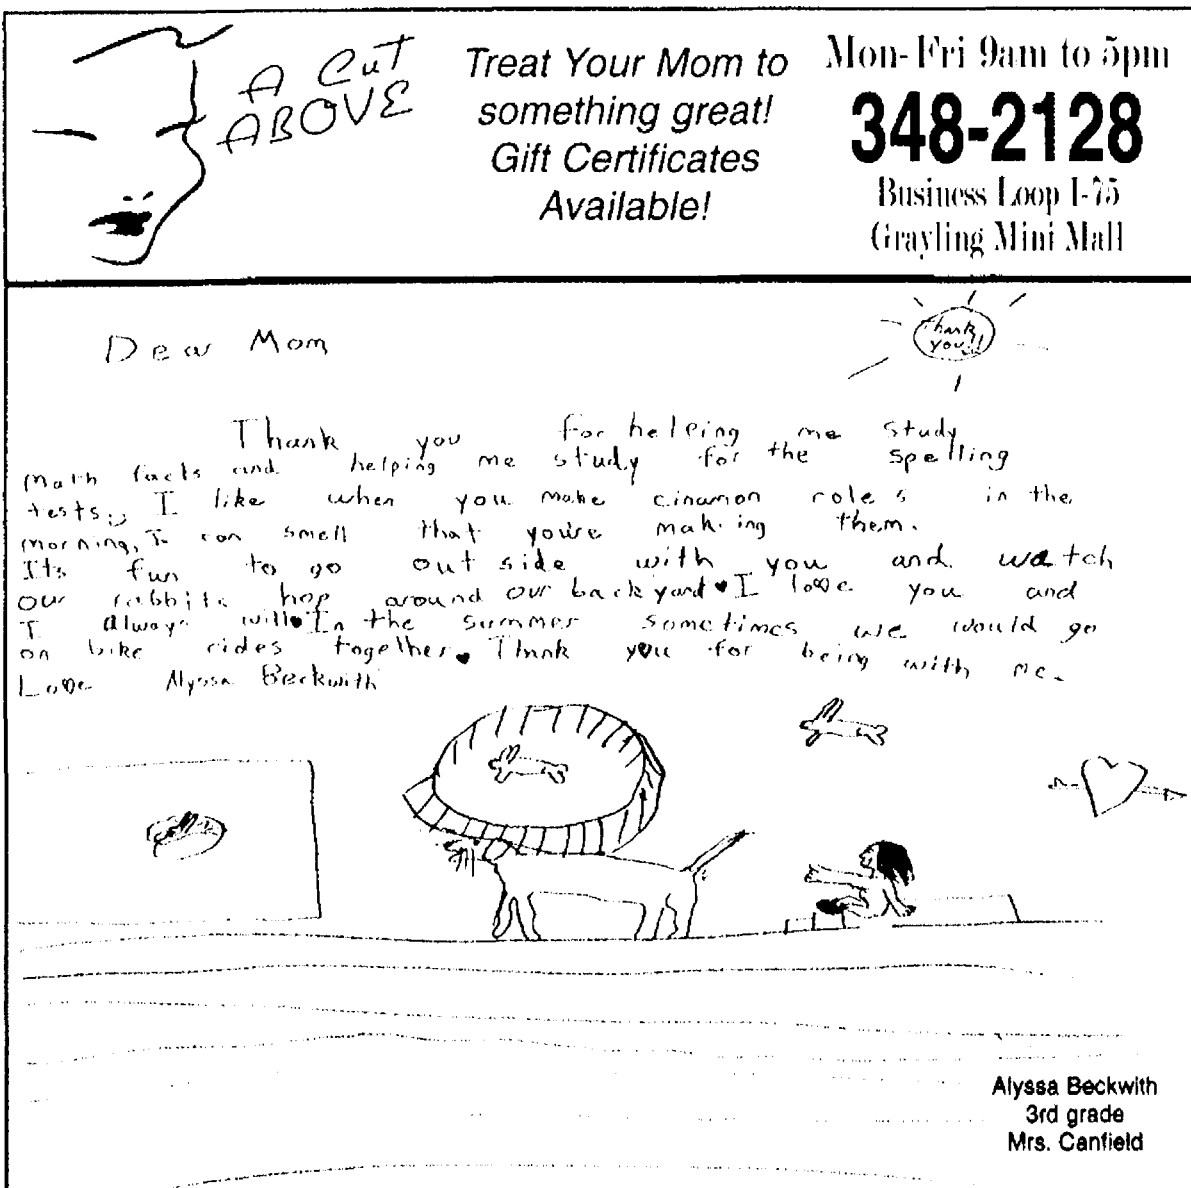 A CUT
ABOVE
Treat Your Mom to
something great!
Gift Certificates
Available!
Mon-Fri 9am to 5pm
348-2128
Business Loop I-75
Grayling Mini Mall
Thank
you!!
Dear Mom
Thank you for helping me study
math facts and helping me study for the spelling
tests. I like when you make cinamon roles in the
morning, I can smell that you're making them.
Its fun to go out side with you and watch
our rabbits hop around our back yard♥I love you and
I always will♥In the summer sometimes we would go
on bike rides together♥Thank you for being with me.
Love Alyssa Beckwith
Alyssa Beckwith
3rd grade
Mrs. Canfield